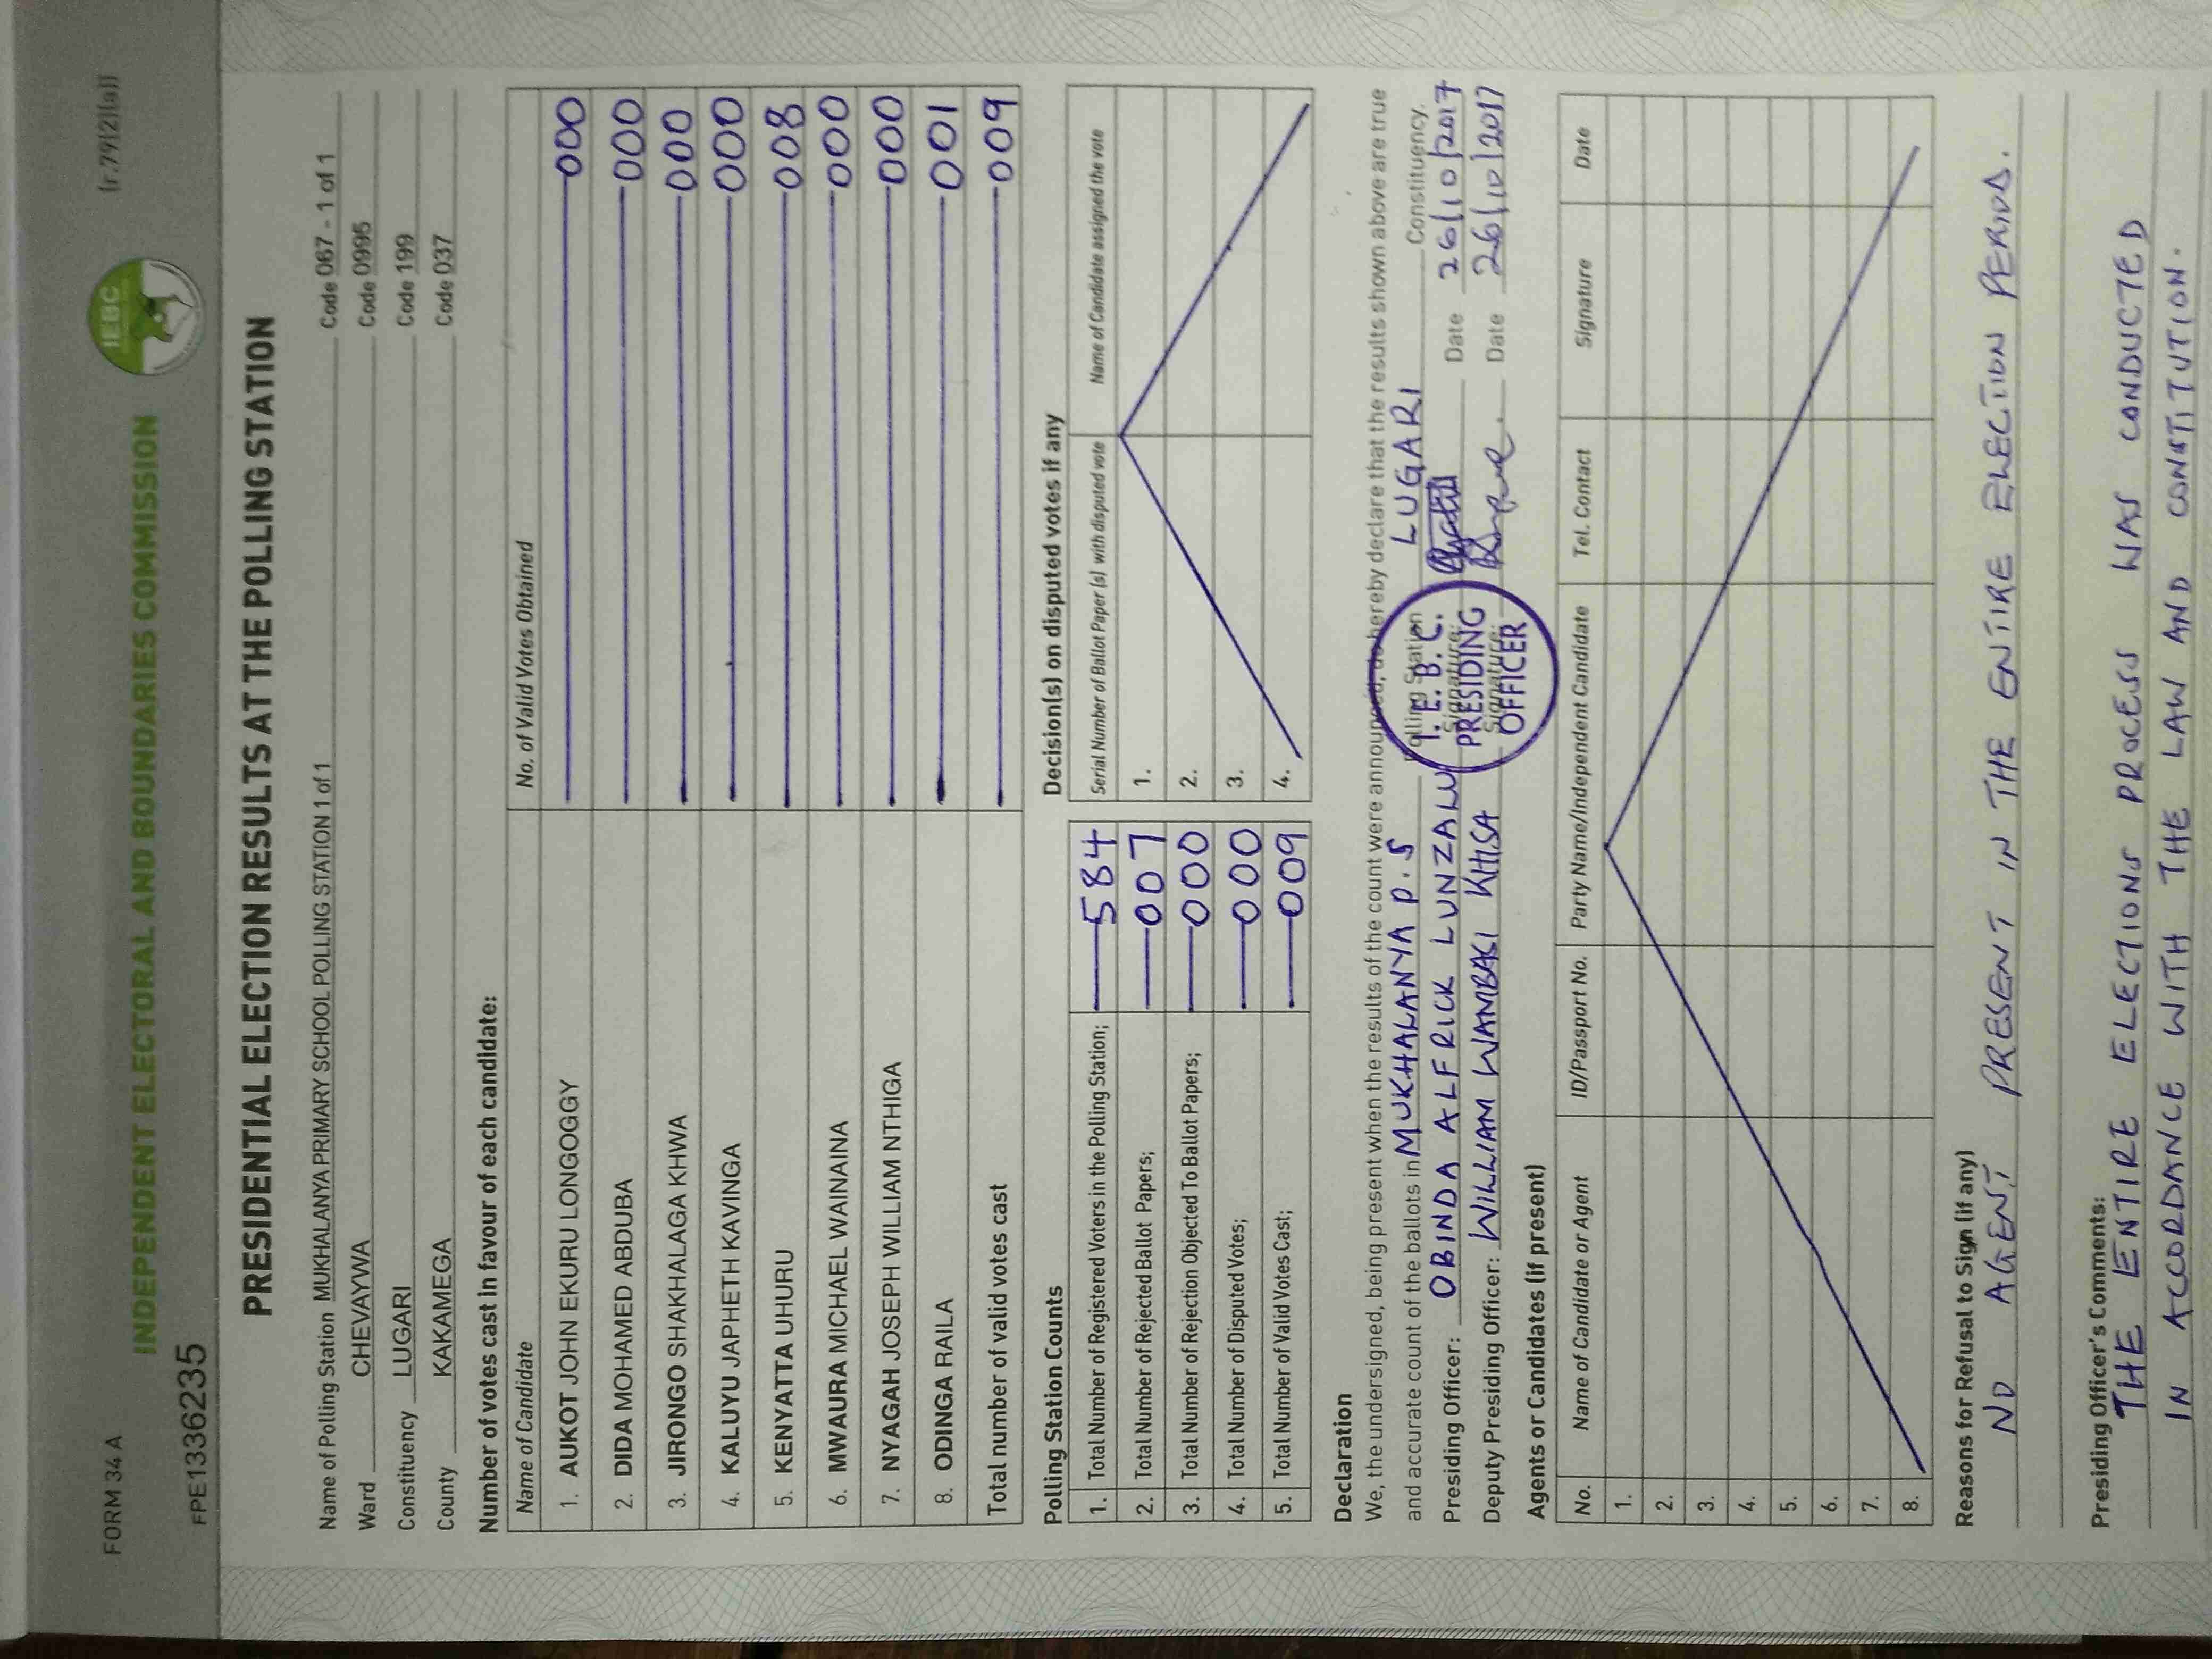 FORM 34 A (r.79(2)(a))
IEBC
INDEPENDENT ELECTORAL AND BOUNDARIES COMMISSION
FPE1336235
PRESIDENTIAL ELECTION RESULTS AT THE POLLING STATION
Name of Polling Station MUKHALANYA PRIMARY SCHOOL POLLING STATION 1 of 1 Code 067 - 1 of 1
Ward CHEVAYWA Code 0995
Constituency LUGARI Code 199
County KAKAMEGA Code 037
Number of votes cast in favour of each candidate:
Name of Candidate No. of Valid Votes Obtained
1. AUKOT JOHN EKURU LONGOGGY 000
2. DIDA MOHAMED ABDUBA 000
3. JIRONGO SHAKHALAGA KHWA 000
4. KALUYU JAPHETH KAVINGA 000
5. KENYATTA UHURU 008
6. MWAURA MICHAEL WAINAINA 000
7. NYAGAH JOSEPH WILLIAM NTHIGA 000
8. ODINGA RAILA 001
Total number of valid votes cast 009
Polling Station Counts
1. Total Number of Registered Voters in the Polling Station; 584
2. Total Number of Rejected Ballot Papers; 007
3. Total Number of Rejection Objected To Ballot Papers; 000
4. Total Number of Disputed Votes; 000
5. Total Number of Valid Votes Cast; 009
Decision(s) on disputed votes if any
Serial Number of Ballot Paper (s) with disputed vote Name of Candidate assigned the vote
1.
2.
3.
4.
Declaration
We, the undersigned, being present when the results of the count were announced, do hereby declare that the results shown above are true
and accurate count of the ballots in MUKHALANYA P.S Polling Station LUGARI Constituency.
Presiding Officer: OBINDA ALFRICK LUNZALU Signature: Date 26/10/2017
Deputy Presiding Officer: WILLIAM WAMBASI KHISA Signature: Date 26/10/2017
I.E.B.C.
PRESIDING
OFFICER
Agents or Candidates (if present)
No. Name of Candidate or Agent ID/Passport No. Party Name/Independent Candidate Tel. Contact Signature Date
1.
2.
3.
4.
5.
6.
7.
8.
Reasons for Refusal to Sign (if any)
NO AGENT PRESENT IN THE ENTIRE ELECTION PERIOD.
Presiding Officer's Comments:
THE ENTIRE ELECTIONS PROCESS WAS CONDUCTED
IN ACCORDANCE WITH THE LAW AND CONSTITUTION.